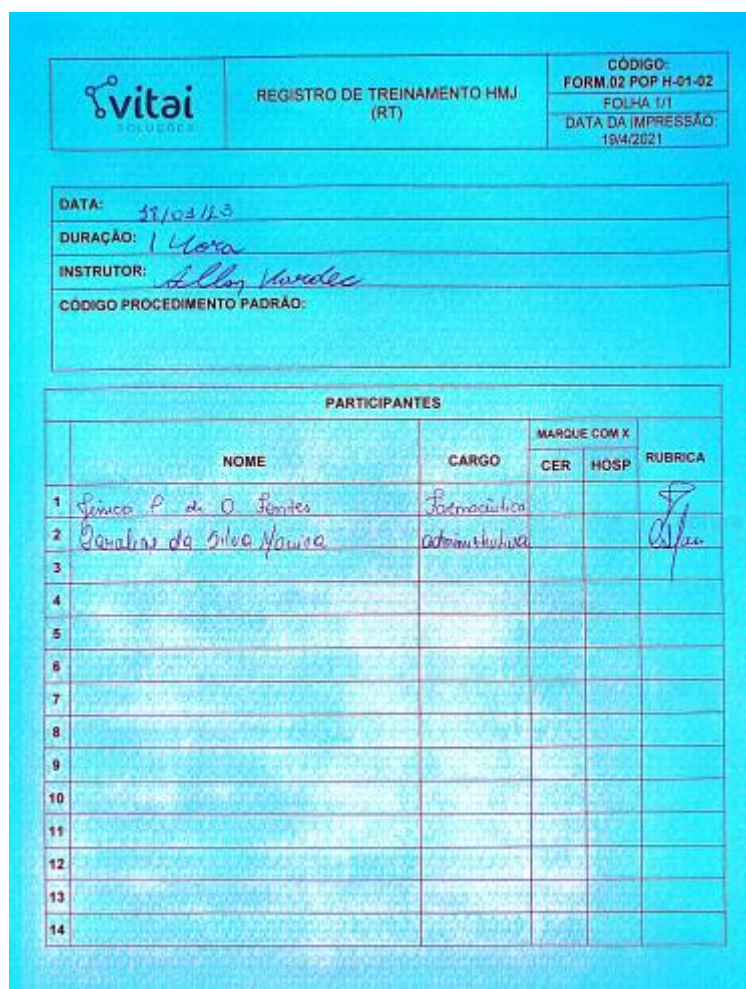 vitai
SOLUÇÕES
REGISTRO DE TREINAMENTO HMJ
(RT)
CÓDIGO:
FORM.02 POP H-01-02
FOLHA 1/1
DATA DA IMPRESSÃO:
19/4/2021
DATA:
DURAÇÃO: 1 Hora
INSTRUTOR: Allan Kardec
CÓDIGO PROCEDIMENTO PADRÃO:
PARTICIPANTES
NOME
CARGO
MARQUE COM X
CER
HOSP
RUBRICA
1 P de O Fontes Farmacêutica
2 da Silva administrativa
3
4
5
6
7
8
9
10
11
12
13
14